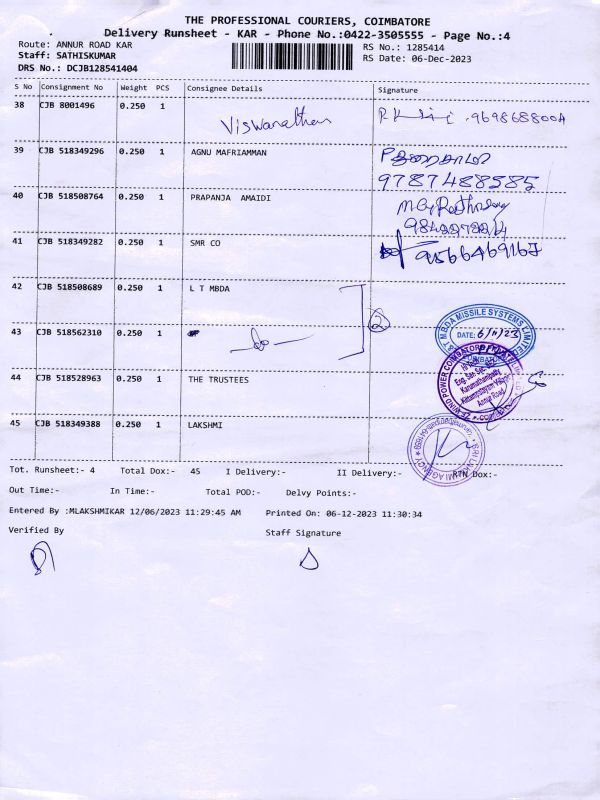 THE PROFESSIONAL COURIERS, COIMBATORE
Delivery Runsheet - KAR - Phone No.:0422-3505555 - Page No.:4
Route: ANNUR ROAD KAR
RS No.: 1285414
Staff: SATHISKUMAR
RS Date: 06-Dec-2023
DRS No.: DCJB128541404
S No Consignment No Weight PCS Consignee Details Signature
38 CJB 8001496 0.250 1 Viswanathan 9698688004
39 CJB 518349296 0.250 1 AGNU MAFRIAMMAN
9787488585
40 CJB 518508764 0.250 1 PRAPANJA AMAIDI
41 CJB 518349282 0.250 1 SMR CO 9566469167
42 CJB 518508689 0.250 1 L T MBDA
2
43 CJB 518562310 0.250 1
DATE:
44 CJB 518528963 0.250 1 THE TRUSTEES
Annur Road
45 CJB 518349388 0.250 1 LAKSHMI
Tot. Runsheet:- 4 Total Dox:- 45 I Delivery:- II Delivery:- RTN Dox:-
Out Time:- In Time:- Total POD:- Delvy Points:-
Entered By :MLAKSHMIKAR 12/06/2023 11:29:45 AM Printed On: 06-12-2023 11:30:34
Verified By Staff Signature